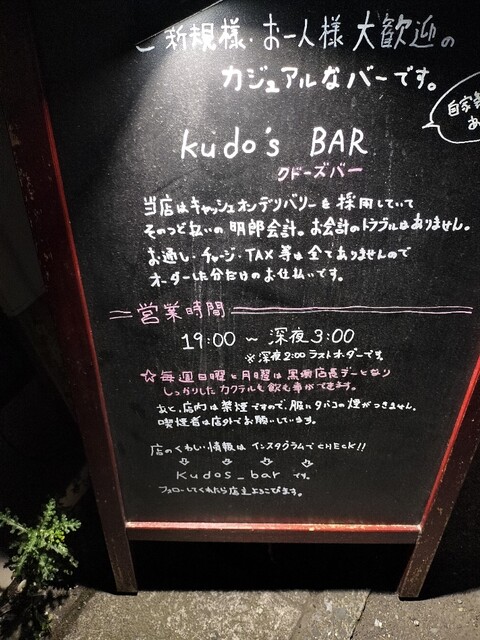 ご新規様・お一人様 大歓迎の
カジュアルなバーです。
自家製
あ
kudo's BAR
クドーズバー
当店はキャッシュオンデリバリーを採用していて
そのつど払いの明朗会計。お会計のトラブルはありません。
お通し・チャージ・TAX等は全てありませんので
オーダーした分だけのお仕払いです。
営業時間
19:00 ~ 深夜3:00
※深夜2:00ラストオーダーです。
☆毎週日曜と月曜は黒澤店長デーとなり
しっかりしたカクテルも飲む事ができます。
あと、店内は禁煙ですので、服にタバコの煙がつきません。
喫煙者は店外でお願いしています。
店のくわしい情報はインスタグラムでCHECK!!
kudos_bar です。
フォローしてくれたら店主よろこびます。